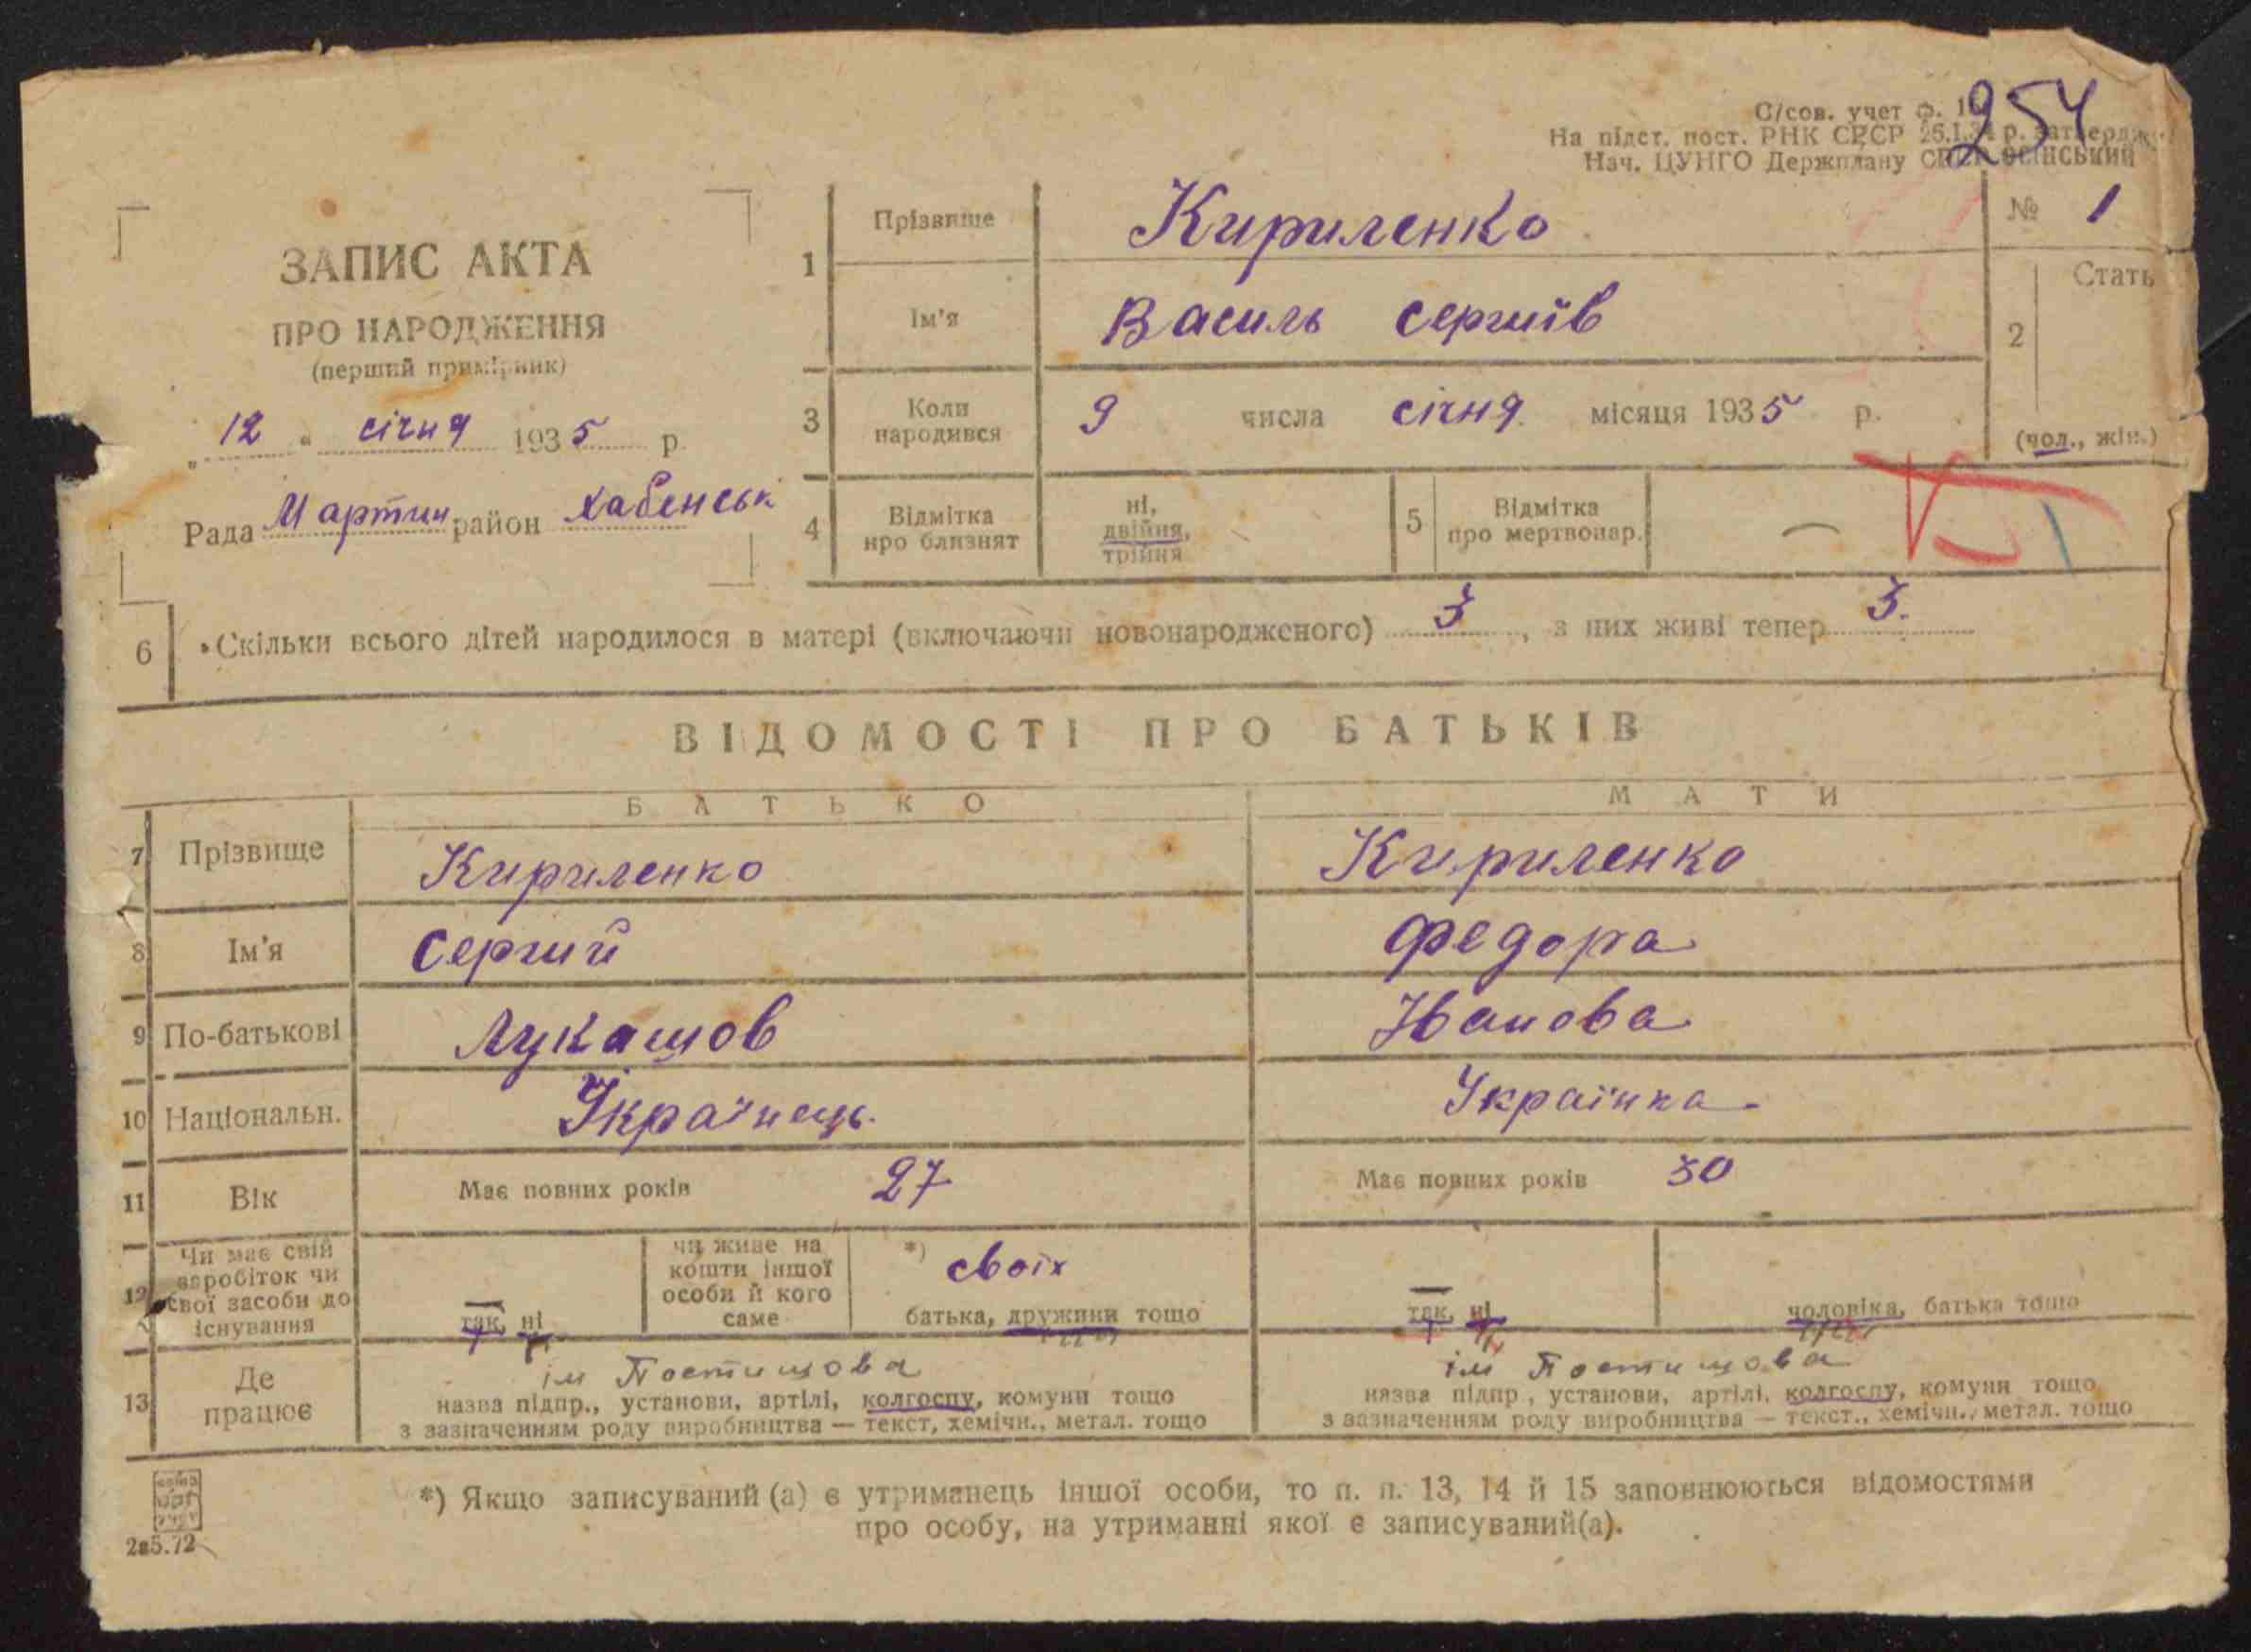 254
С/сов. учет ф. 1
На підст. пост. РНК СРСР 25.I.34 р. затвердж
Нач. ЦУНГО Держплану ОСІНСЬКИЙ
ЗАПИС АКТА
ПРО НАРОДЖЕННЯ
(перший примірник)
„ 12 “ січня 1935 р.
Рада Мартин район Хабенськ
1 Прізвище Кириленко
№ 1
Ім'я Василь Сергиів
2 Стать
(чол., жін.)
3 Коли народився 9 числа січня місяця 1935 р.
4 Відмітка про близнят ні, двійня, трійня
5 Відмітка про мертвонар. —
6 Скільки всього дітей народилося в матері (включаючи новонародженого) 3, з них живі тепер 3.
ВІДОМОСТІ ПРО БАТЬКІВ
БАТЬКО МАТИ
7 Прізвище Кириленко Кириленко
8 Ім'я Сергий Федора
9 По-батькові Лукашов Иванова
10 Національн. Українець. Українка
11 Вік Має повних років 27 Має повних років 30
12 Чи має свій заробіток чи свої засоби до існування
так, ні
чи живе на кошти іншої особи й кого саме
*) своїх
батька, дружини тощо
так, ні
чоловіка, батька тощо
13 Де працює
ім Постишова
назва підпр., установи, артілі, колгоспу, комуни тощо
з зазначенням роду виробництва — текст, хемічн., метал. тощо
ім Постишова
назва підпр., установи, артілі, колгоспу, комуни тощо
з зазначенням роду виробництва — текст., хемічн., метал. тощо
*) Якщо записуваний (а) є утриманець іншої особи, то п. п. 13, 14 й 15 заповнюються відомостями
про особу, на утриманні якої є записуваний(а).
2а5.72